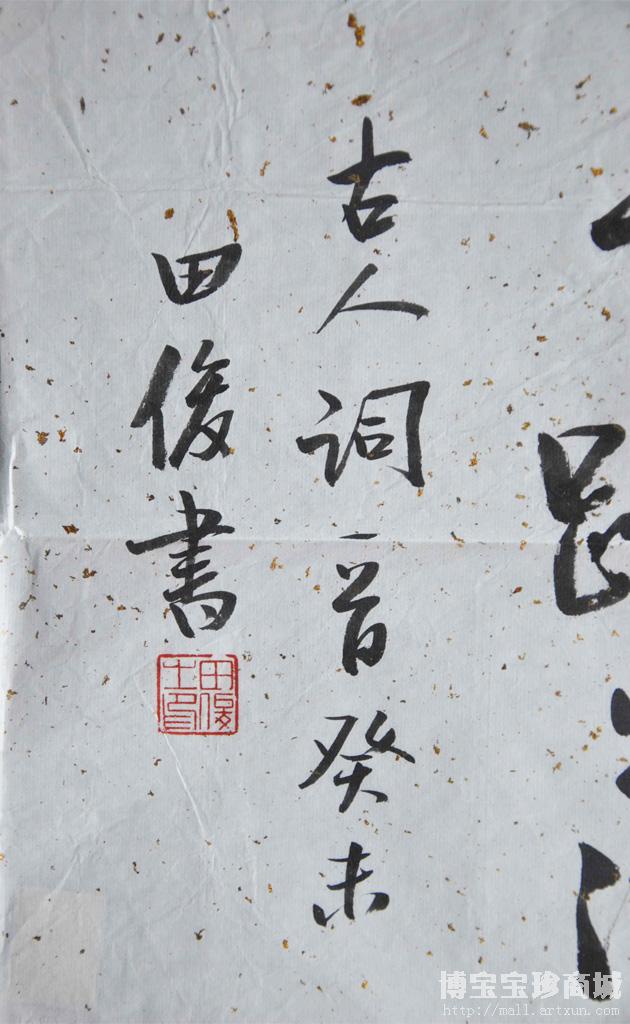 古人词一首癸未
田俊書
田俊之印
博宝宝珍商城
http://mall.artxun.com